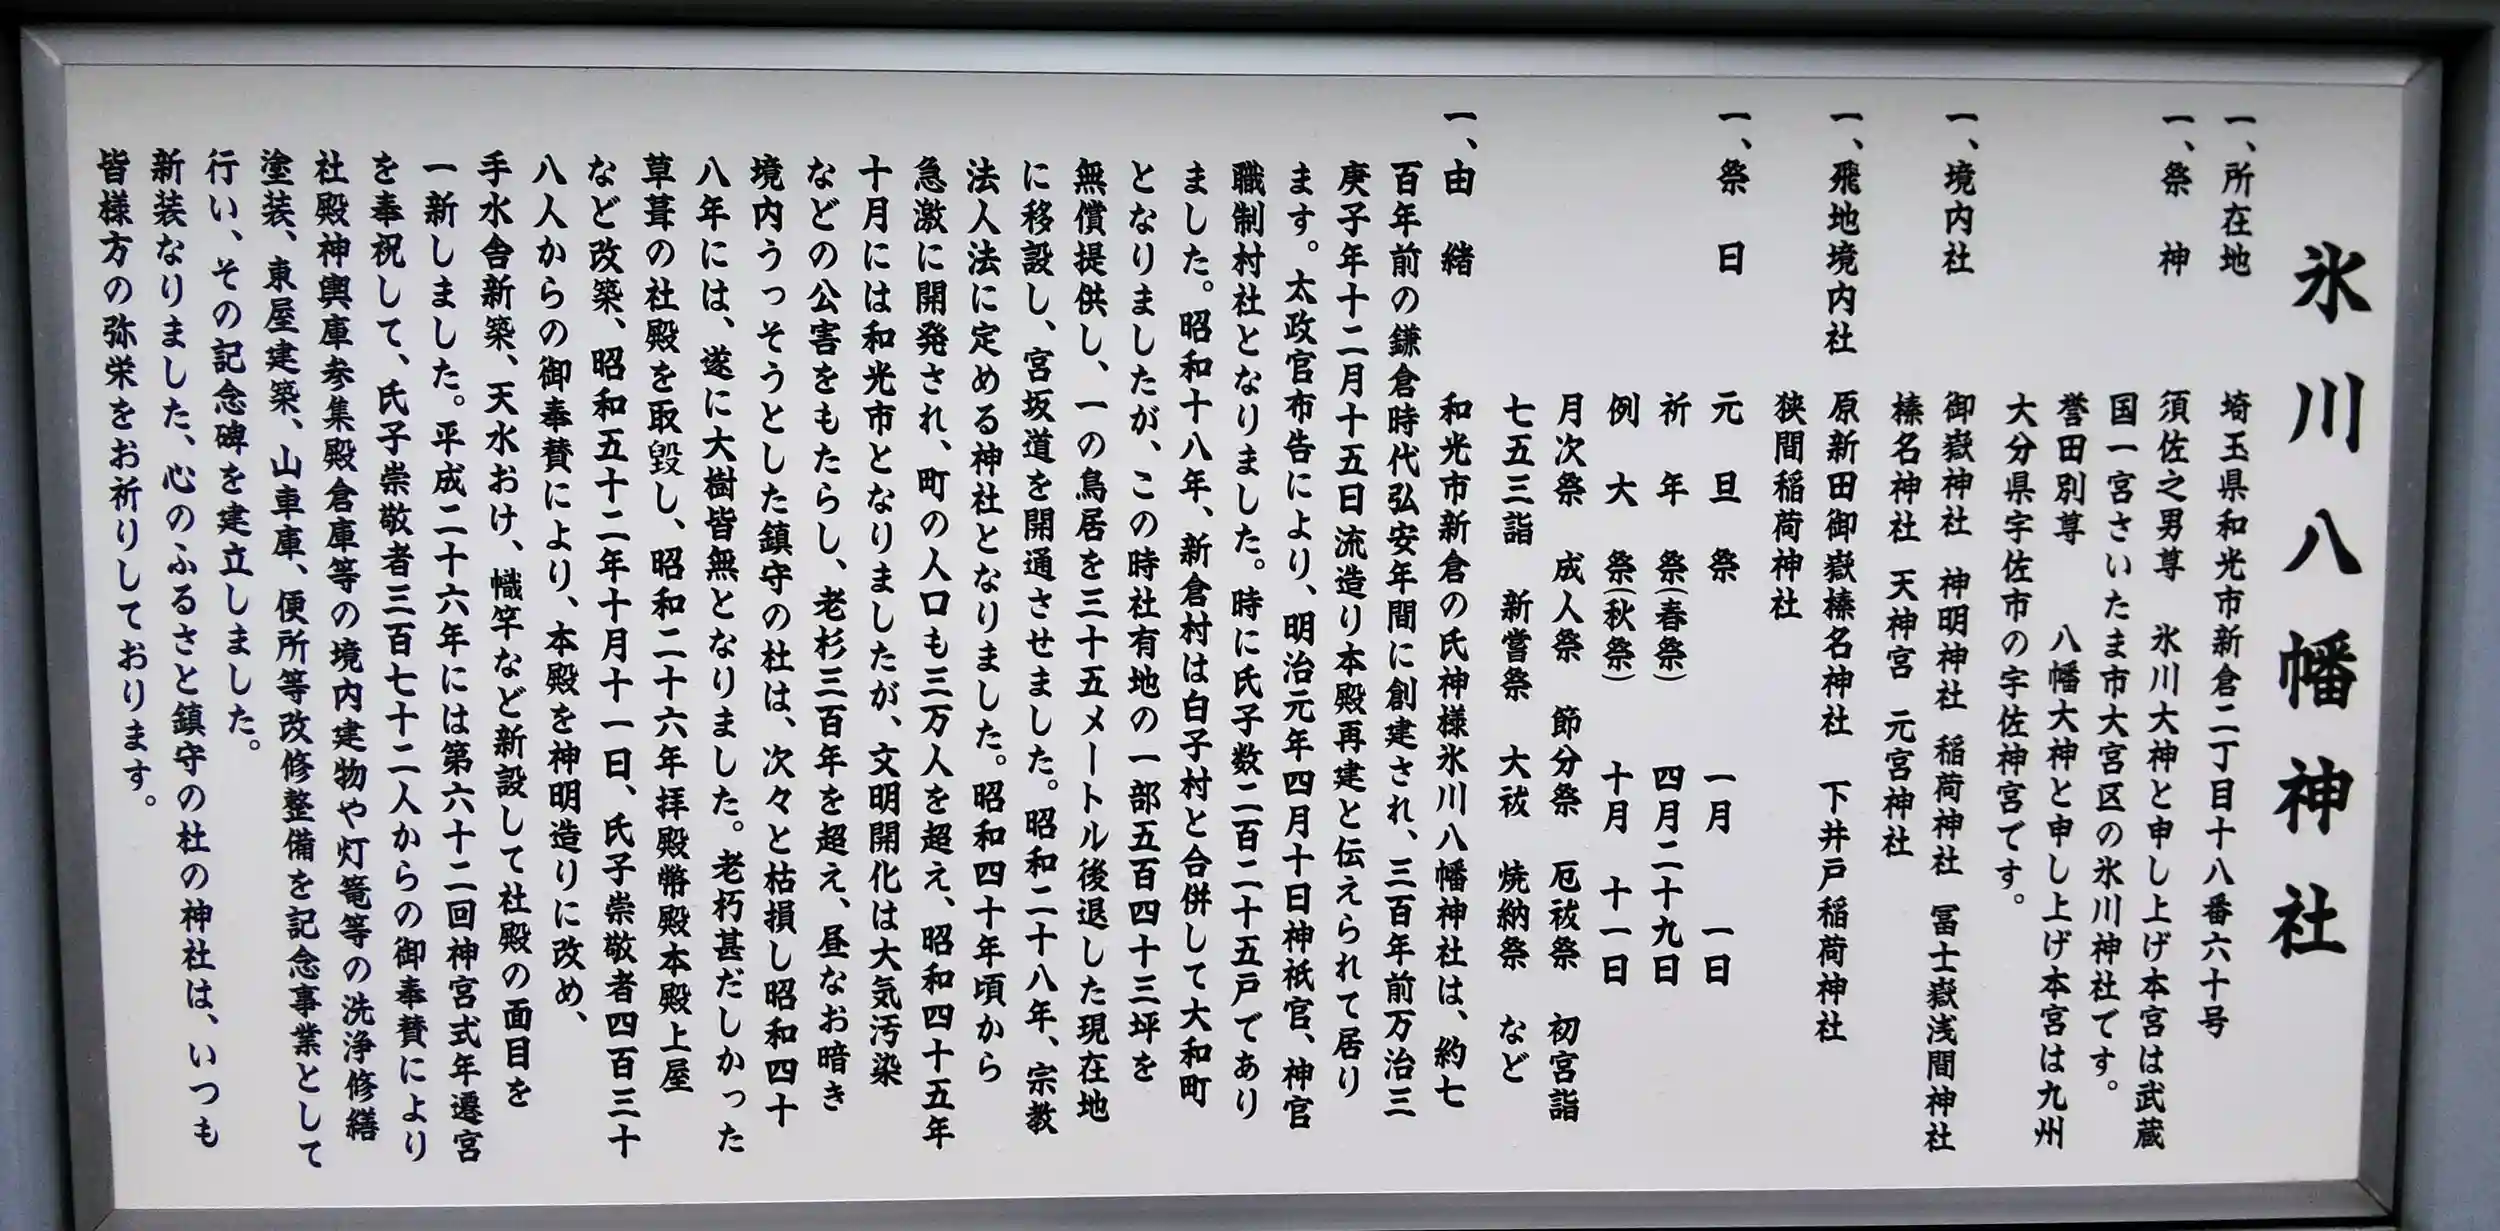 氷川八幡神社
一、所在地　埼玉県和光市新倉二丁目十八番六十号
一、祭　神　須佐之男尊　氷川大神と申し上げ本宮は武蔵
国一宮さいたま市大宮区の氷川神社です。
誉田別尊　八幡大神と申し上げ本宮は九州
大分県宇佐市の宇佐神宮です。
一、境内社　御嶽神社　神明神社　稲荷神社　冨士嶽浅間神社
榛名神社　天神宮　元宮神社
一、飛地境内社　原新田御嶽榛名神社　下井戸稲荷神社
狭間稲荷神社
一、祭　日　元　旦　祭　一月　一日
祈　年　祭（春祭）　四月二十九日
例　大　祭（秋祭）　十月　十一日
月次祭　成人祭　節分祭　厄祓祭　初宮詣
七五三詣　新嘗祭　大祓　焼納祭　など
一、由　緒　和光市新倉の氏神様氷川八幡神社は、約七
百年前の鎌倉時代弘安年間に創建され、三百年前万治三
庚子年十二月十五日流造り本殿再建と伝えられて居り
ます。太政官布告により、明治元年四月十日神祇官、神官
職制村社となりました。時に氏子数二百二十五戸であり
ました。昭和十八年、新倉村は白子村と合併して大和町
となりましたが、この時社有地の一部五百四十三坪を
無償提供し、一の鳥居を三十五メートル後退した現在地
に移設し、宮坂道を開通させました。昭和二十八年、宗教
法人法に定める神社となりました。昭和四十年頃から
急激に開発され、町の人口も三万人を超え、昭和四十五年
十月には和光市となりましたが、文明開化は大気汚染
などの公害をもたらし、老杉三百年を超え、昼なお暗き
境内うっそうとした鎮守の杜は、次々と枯損し昭和四十
八年には、遂に大樹皆無となりました。老朽甚だしかった
草葺の社殿を取毀し、昭和二十六年拝殿幣殿本殿上屋
など改築、昭和五十二年十月十一日、氏子崇敬者四百三十
八人からの御奉賛により、本殿を神明造りに改め、
手水舎新築、天水おけ、幟竿など新設して社殿の面目を
一新しました。平成二十六年には第六十二回神宮式年遷宮
を奉祝して、氏子崇敬者三百七十二人からの御奉賛により
社殿神輿庫参集殿倉庫等の境内建物や灯篭等の洗浄修繕
塗装、東屋建築、山車庫、便所等改修整備を記念事業として
行い、その記念碑を建立しました。
新装なりました、心のふるさと鎮守の杜の神社は、いつも
皆様方の弥栄をお祈りしております。